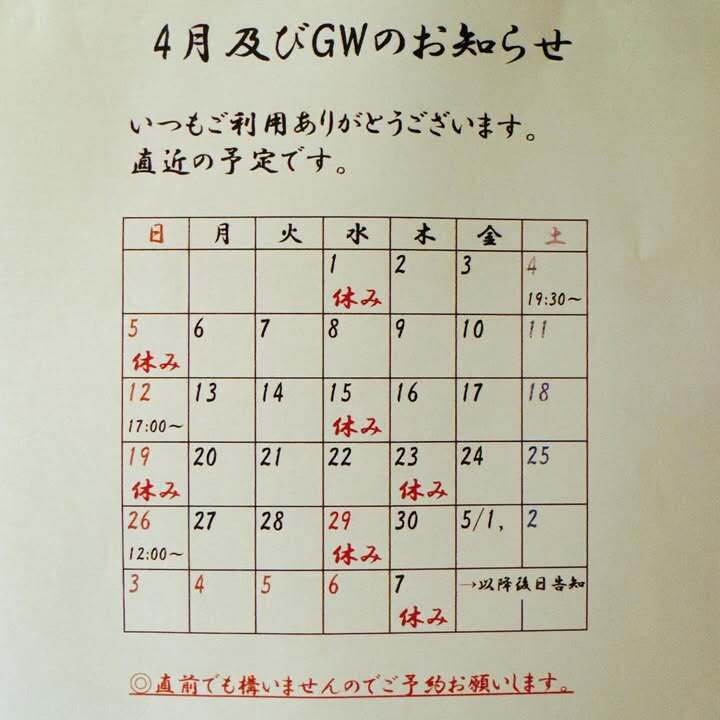 4月及びGWのお知らせ
いつもご利用ありがとうございます。
直近の予定です。
日 月 火 水 木 金 土
1 2 3 4
休み 19:30～
5 6 7 8 9 10 11
休み
12 13 14 15 16 17 18
17:00～ 休み
19 20 21 22 23 24 25
休み 休み
26 27 28 29 30 5/1, 2
12:00～ 休み
3 4 5 6 7 →以降後日告知
休み
◎直前でも構いませんのでご予約お願いします。